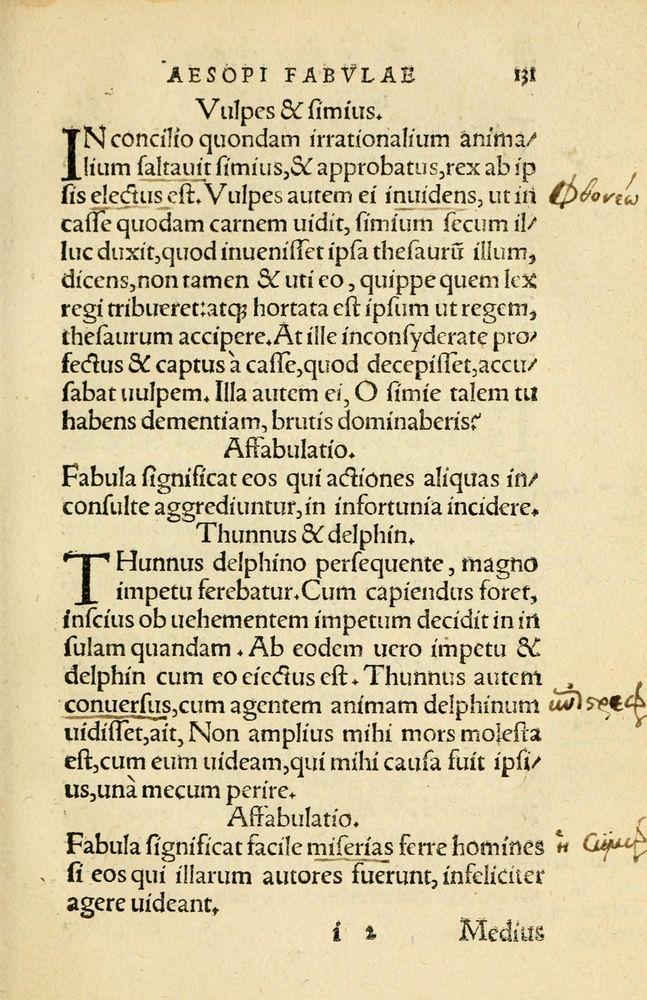 AESOPI FABVLAE 131
Vulpes & simius.
IN concilio quondam irrationalium anima/
lium saltauit simius, & approbatus, rex ab ip
sis electus est. Vulpes autem ei inuidens, ut in φθονέω
casse quodam carnem uidit, simium secum il/
luc duxit, quod inuenisset ipsa thesaurũ illum,
dicens, non tamen & uti eo, quippe quem lex
regi tribueret: atq; hortata est ipsum ut regem,
thesaurum accipere. At ille inconsyderate pro/
fectus & captus à casse, quod decepisset, accu/
sabat uulpem. Illa autem ei, O simie talem tu
habens dementiam, brutis dominaberis?
Affabulatio.
Fabula significat eos qui actiones aliquas in/
consulte aggrediuntur, in infortunia incidere.
Thunnus & delphin.
THunnus delphino persequente, magno
impetu ferebatur. Cum capiendus foret,
inscius ob uehementem impetum decidit in in
sulam quandam. Ab eodem uero impetu &
delphin cum eo eiectus est. Thunnus autem
conuersus, cum agentem animam delphinum
uidisset, ait, Non amplius mihi mors molesta
est, cum eum uideam, qui mihi causa fuit ipsi/
us, unà mecum perire.
Affabulatio.
Fabula significat facile miserias ferre homines
si eos qui illarum autores fuerunt, infeliciter
agere uideant.
i 2 Medius